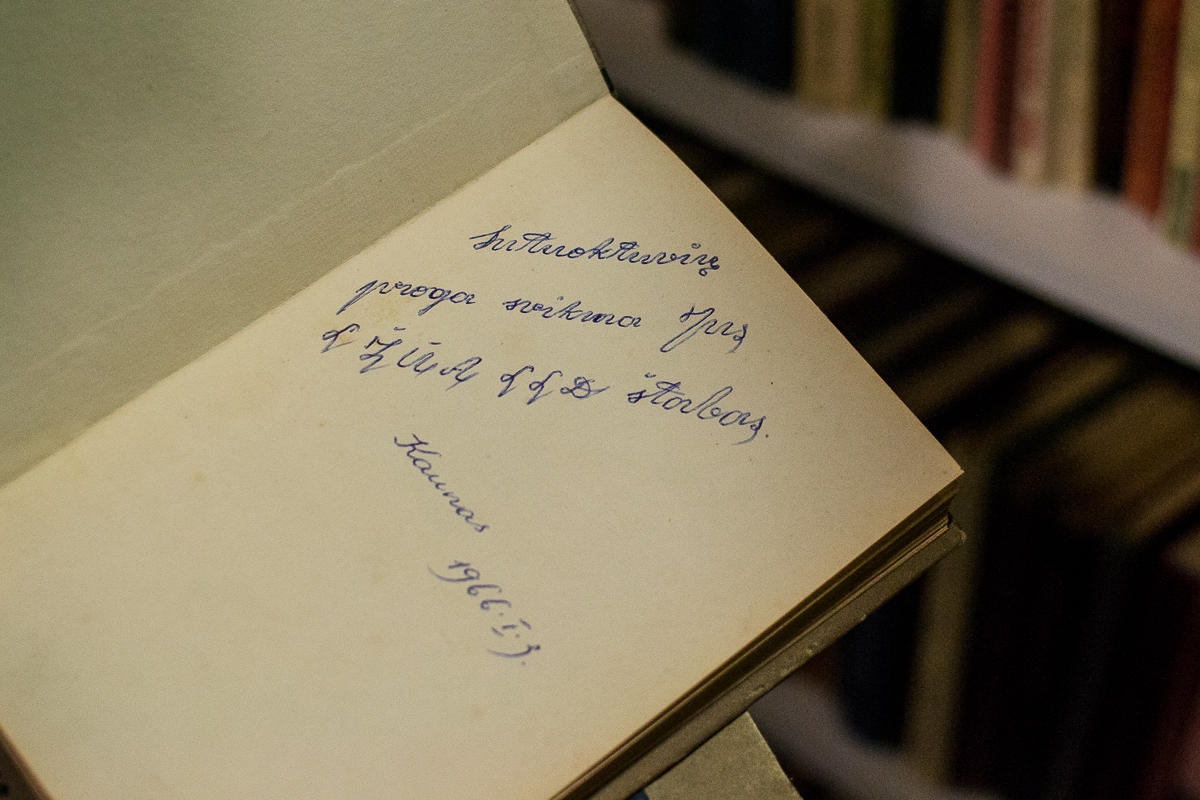 Sutuoktuvių
proga sveikina Jus
LŽŪA LLD štabas.
Kaunas
1966.I.3.